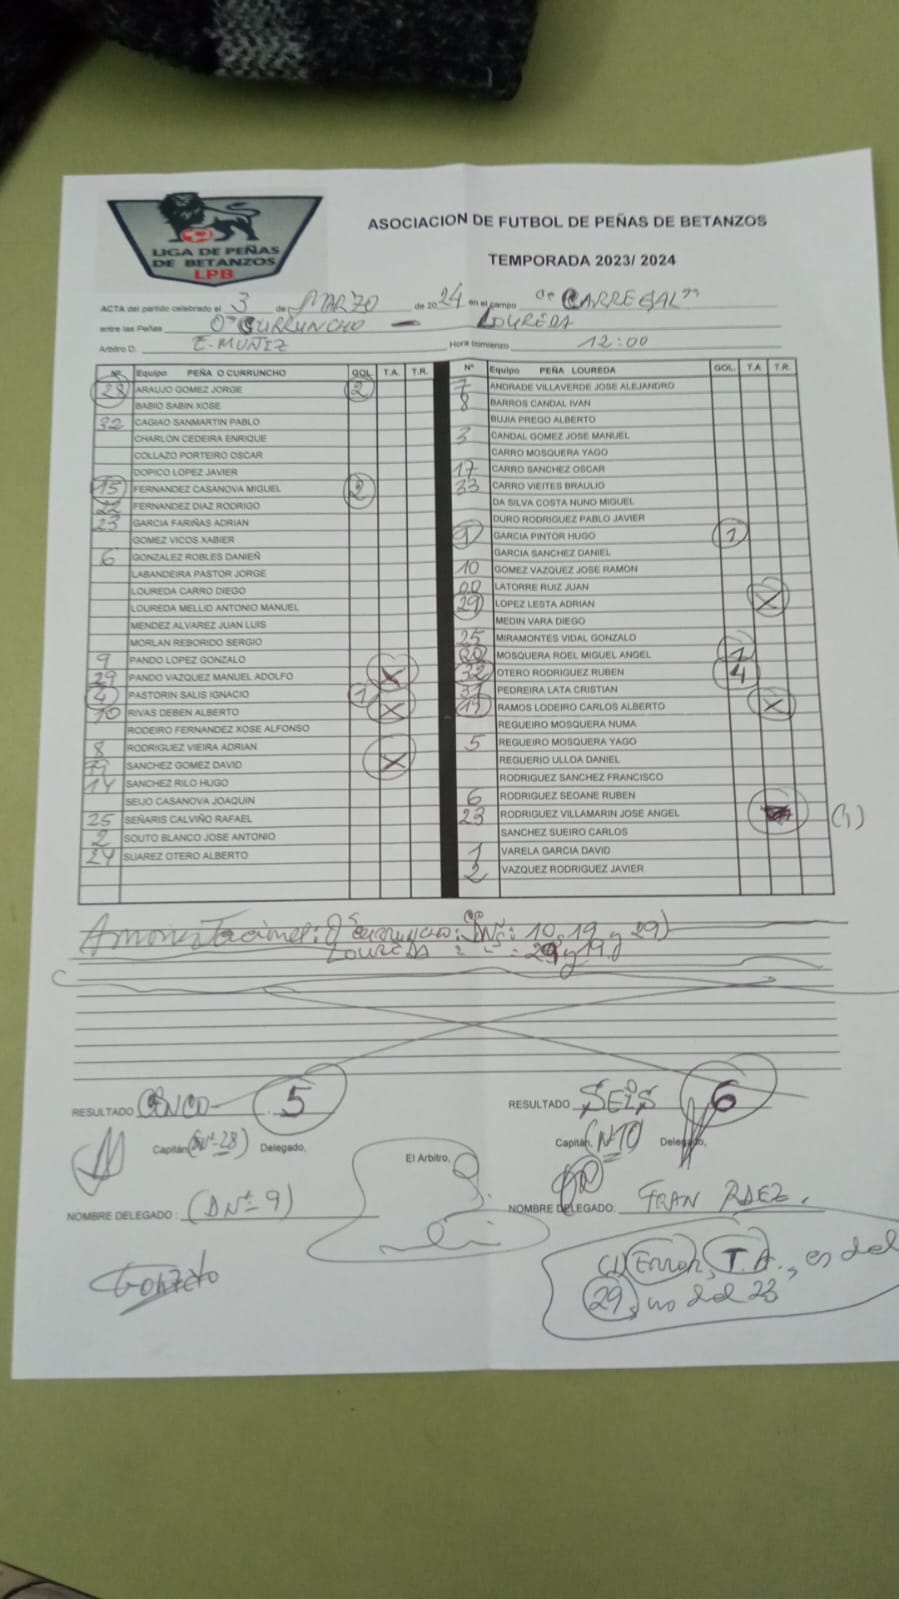 LIGA DE PEÑAS
DE BETANZOS
LPB
ASOCIACION DE FUTBOL DE PEÑAS DE BETANZOS
TEMPORADA 2023/ 2024
ACTA del partido celebrado el 3 de MARZO de 2024 en el campo de "CARREGAL"
entre las Peñas O CURRUNCHO - LOUREDA
Arbitro D. E. MUÑIZ Hora comienzo 12:00
Nº Equipo PEÑA O CURRUNCHO GOL. T.A. T.R.
28 ARAUJO GOMEZ JORGE 2
BABIO SABIN XOSE
32 CAGIAO SANMARTIN PABLO
CHARLON CEDEIRA ENRIQUE
COLLAZO PORTEIRO OSCAR
DOPICO LOPEZ JAVIER
15 FERNANDEZ CASANOVA MIGUEL 2
22 FERNANDEZ DIAZ RODRIGO
23 GARCIA FARIÑAS ADRIAN
GOMEZ VICOS XABIER
6 GONZALEZ ROBLES DANIEÑ
LABANDEIRA PASTOR JORGE
LOUREDA CARRO DIEGO
LOUREDA MELLID ANTONIO MANUEL
MENDEZ ALVAREZ JUAN LUIS
MORLAN REBORIDO SERGIO
9 PANDO LOPEZ GONZALO
29 PANDO VAZQUEZ MANUEL ADOLFO X
PASTORIN SALIS IGNACIO 1
10 RIVAS DEBEN ALBERTO X
RODEIRO FERNANDEZ XOSE ALFONSO
8 RODRIGUEZ VIEIRA ADRIAN
19 SANCHEZ GOMEZ DAVID X
14 SANCHEZ RILO HUGO
SEIJO CASANOVA JOAQUIN
25 SEÑARIS CALVIÑO RAFAEL
2 SOUTO BLANCO JOSE ANTONIO
24 SUAREZ OTERO ALBERTO
Nº Equipo PEÑA LOUREDA GOL. T.A T.R.
7 ANDRADE VILLAVERDE JOSE ALEJANDRO
8 BARROS CANDAL IVAN
BUJIA PREGO ALBERTO
3 CANDAL GOMEZ JOSE MANUEL
CARRO MOSQUERA YAGO
17 CARRO SANCHEZ OSCAR
33 CARRO VIEITES BRAULIO
DA SILVA COSTA NUNO MIGUEL
DURO RODRIGUEZ PABLO JAVIER
9 GARCIA PINTOR HUGO 1
GARCIA SANCHEZ DANIEL
10 GOMEZ VAZQUEZ JOSE RAMON
LATORRE RUIZ JUAN
29 LOPEZ LESTA ADRIAN X
MEDIN VARA DIEGO
25 MIRAMONTES VIDAL GONZALO
MOSQUERA ROEL MIGUEL ANGEL 1
OTERO RODRIGUEZ RUBEN 4
PEDREIRA LATA CRISTIAN
19 RAMOS LODEIRO CARLOS ALBERTO X
REGUEIRO MOSQUERA NUMA
5 REGUEIRO MOSQUERA YAGO
REGUERIO ULLOA DANIEL
RODRIGUEZ SANCHEZ FRANCISCO
6 RODRIGUEZ SEOANE RUBEN
23 RODRIGUEZ VILLAMARIN JOSE ANGEL (1)
SANCHEZ SUEIRO CARLOS
1 VARELA GARCIA DAVID
2 VAZQUEZ RODRIGUEZ JAVIER
Amonestaciones: O CURRUNCHO: DNº: 10, 19 y 29)
LOUREDA : " : 29 y 19.)
RESULTADO CINCO 5
Capitán (Nº 28) Delegado,
NOMBRE DELEGADO : (DNº 9)
Gonzalo
El Arbitro,
RESULTADO SEIS 6
Capitán, (Nº 10) Delegado,
NOMBRE DELEGADO: FRAN RDEZ.
(1) Error, T.A., es del
29, no del 23